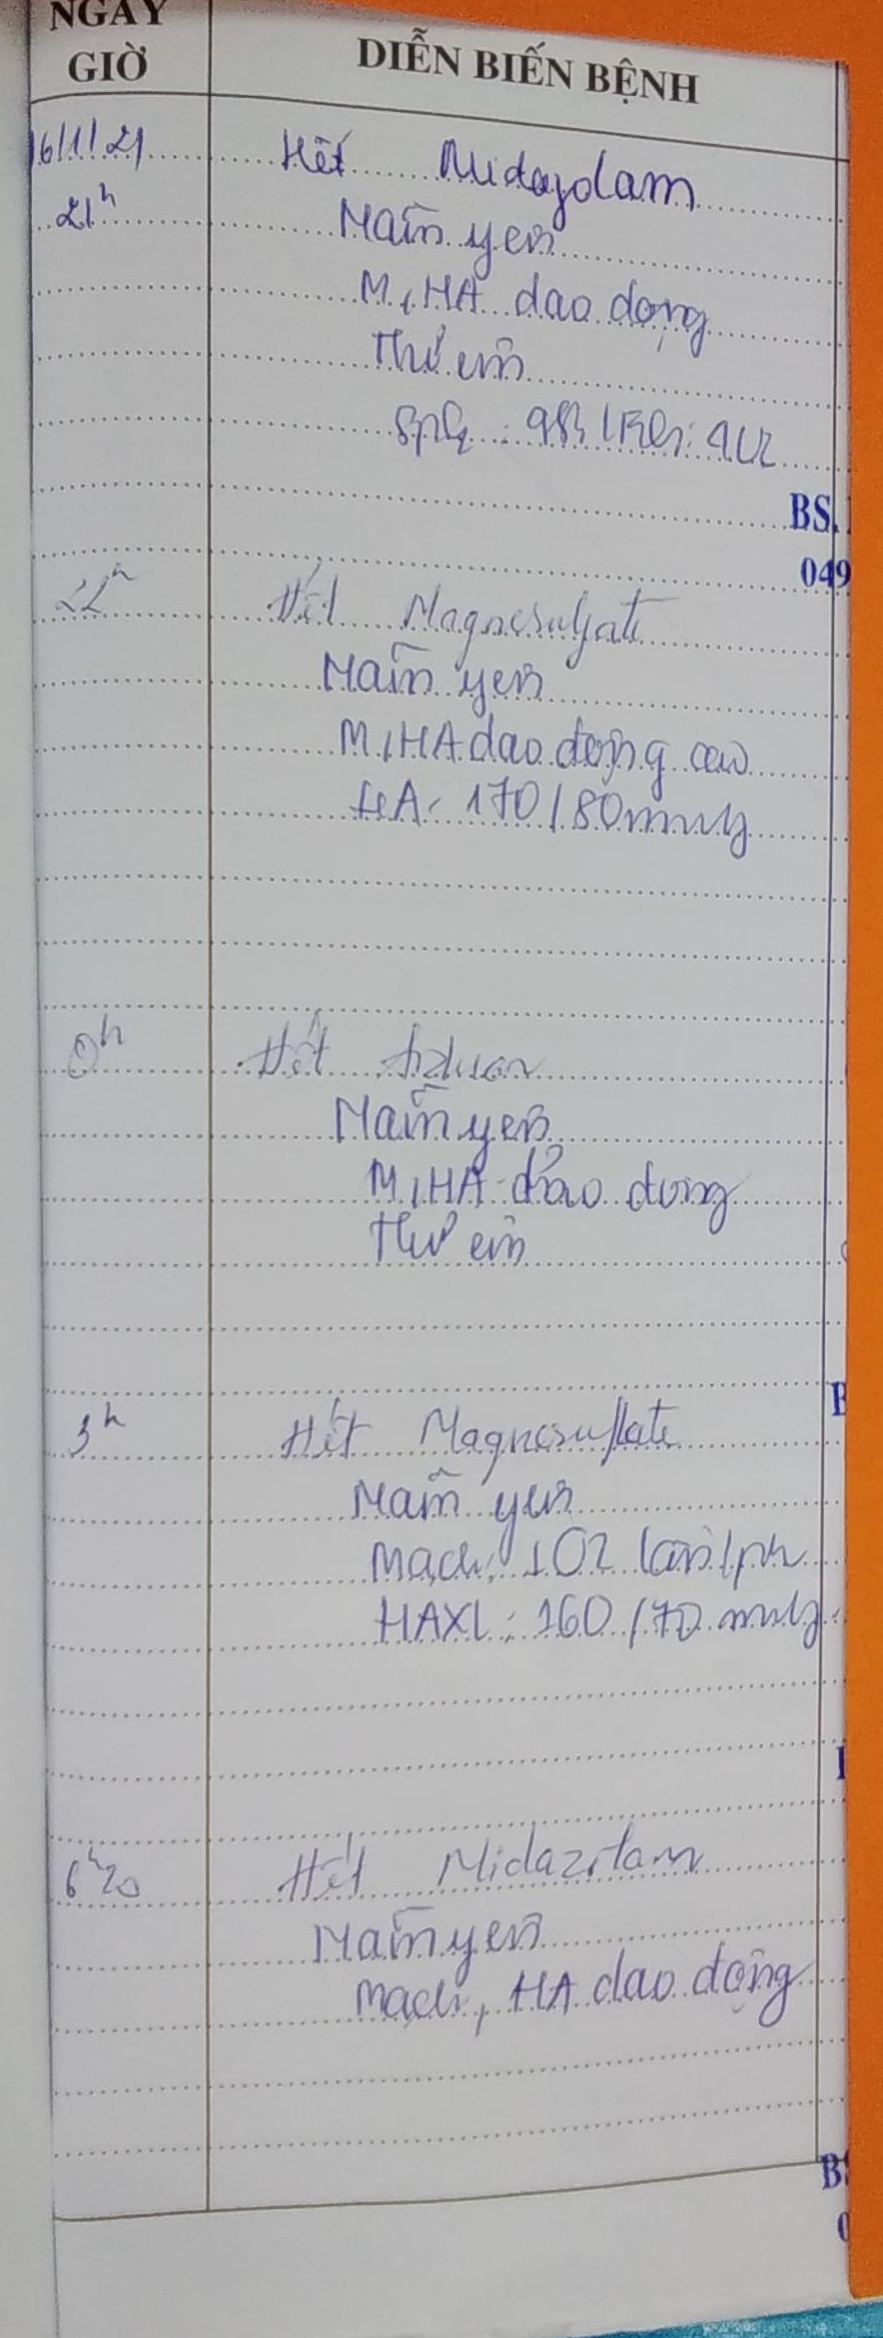 NGÀY
GIỜ
DIỄN BIẾN BỆNH
16/1/21 Hết Midazolam
21h Nằm yên
M, HA dao động
Thở êm
SpO2: 98%
BS.
049
22h Hết Magnesulfate
Nằm yên
M, HA dao động cao
HA: 170/80mmHg
0h Hết
Nằm yên
M, HA dao động
Thở êm
3h Hết Magnesulfate
Nằm yên
Mạch: 102 lần/ph
HAXL: 160/70 mmHg
6h20 Hết Midazolam
Nằm yên
Mạch, HA dao động